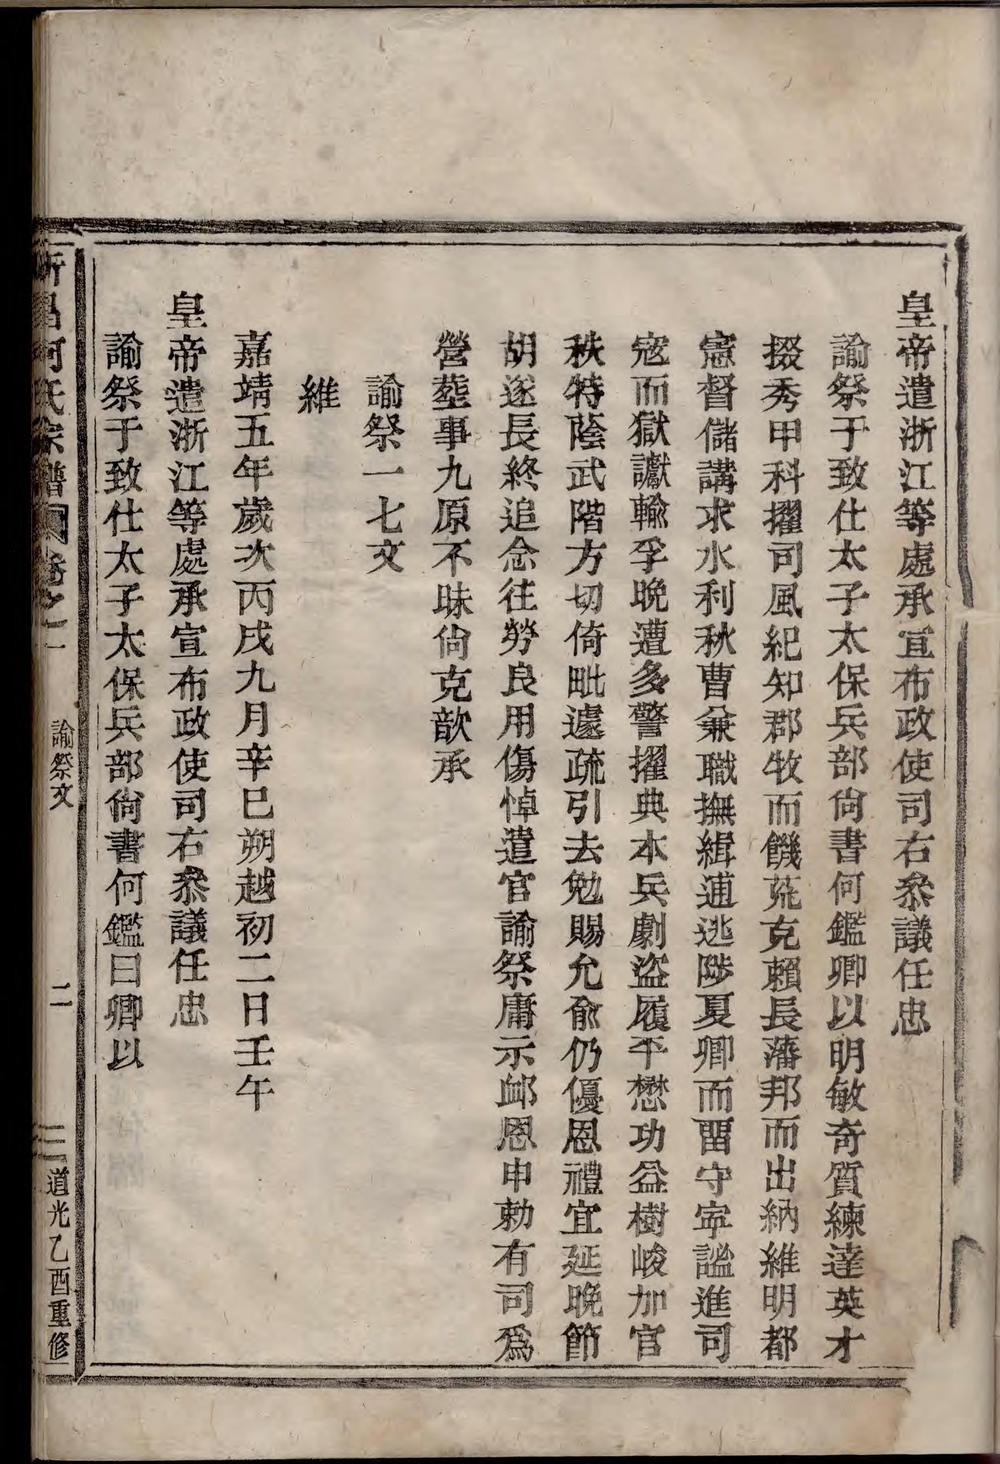 皇帝遣浙江等處承宣布政使司右叅議任忠
諭祭于致仕太子太保兵部尙書何鑑卿以明敏奇質練達英才
掇秀甲科擢司風紀知郡牧而饑荒克賴長藩邦而出納維明都
憲督儲講求水利秋曹兼職撫緝逋逃陟夏卿而畱守寧謐進司
寇而獄讞輸孚晚遭多警擢典本兵劇盜履平懋功益樹峻加官
秩特蔭武階方切倚毗遽疏引去勉賜允俞仍優恩禮宜延晚節
胡遂長終追念往勞良用傷悼遣官諭祭庸示卹恩申勅有司爲
營塟事九原不昧尙克歆承
諭祭一七文
維
嘉靖五年歲次丙戌九月辛巳朔越初二日壬午
皇帝遣浙江等處承宣布政使司右叅議任忠
諭祭于致仕太子太保兵部尙書何鑑曰卿以
新昌何氏宗譜 卷之一 諭祭文 二 道光乙酉重修